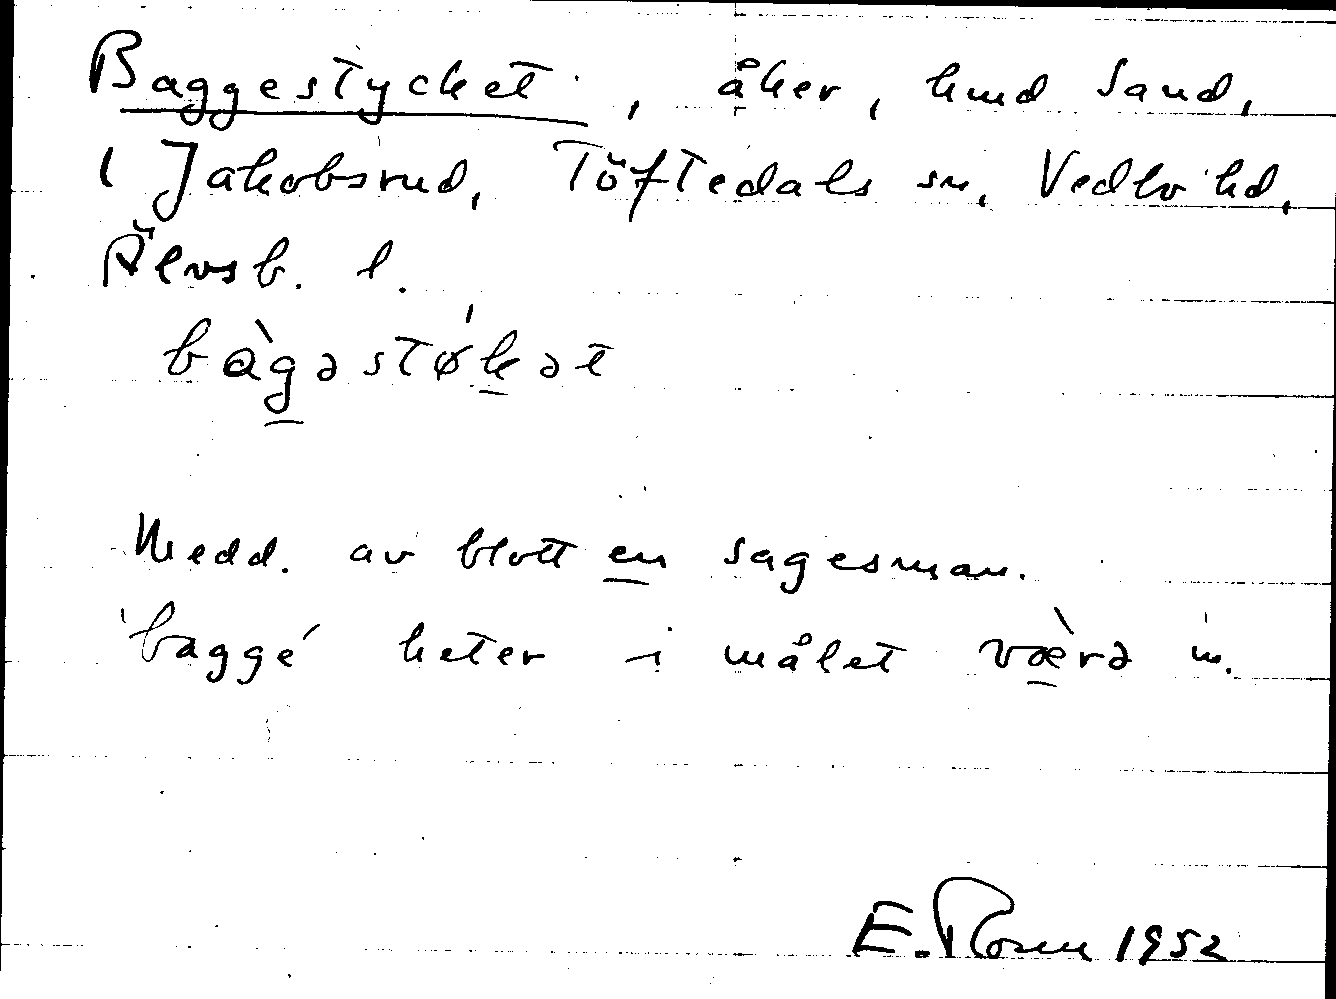 Baggestycket, åker, hmd Sand,
i Jakobsrud, Töftedals sn, Vedbo hd,
Älvsb. l.
bàgəstø̍kət
Medd. av blott en sagesman.
'bagge' heter i målet væ̀rə m.
E. Rosen 1952